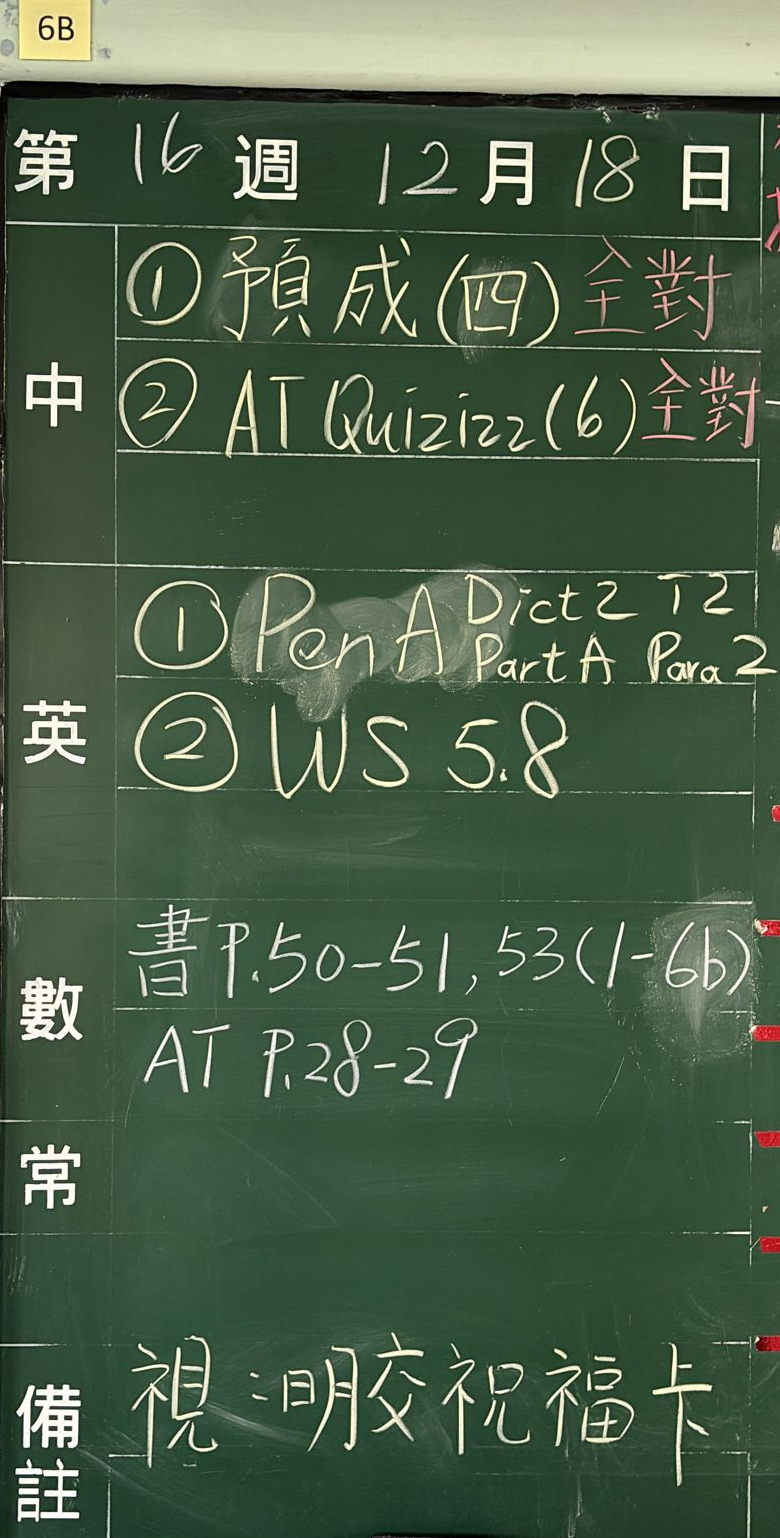 6B
第 16 週 12 月 18 日
中
① 預成(四) 全對
② AT Quizizz(6) 全對
英
① Pen A Dict 2 T2
Part A Para 2
② WS 5.8
數
書 P.50-51, 53(1-6b)
AT P.28-29
常
備註
視:明交祝福卡